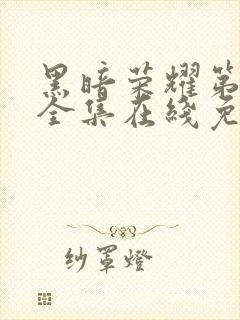 黑暗荣耀第
全集在线免
纱罩燈